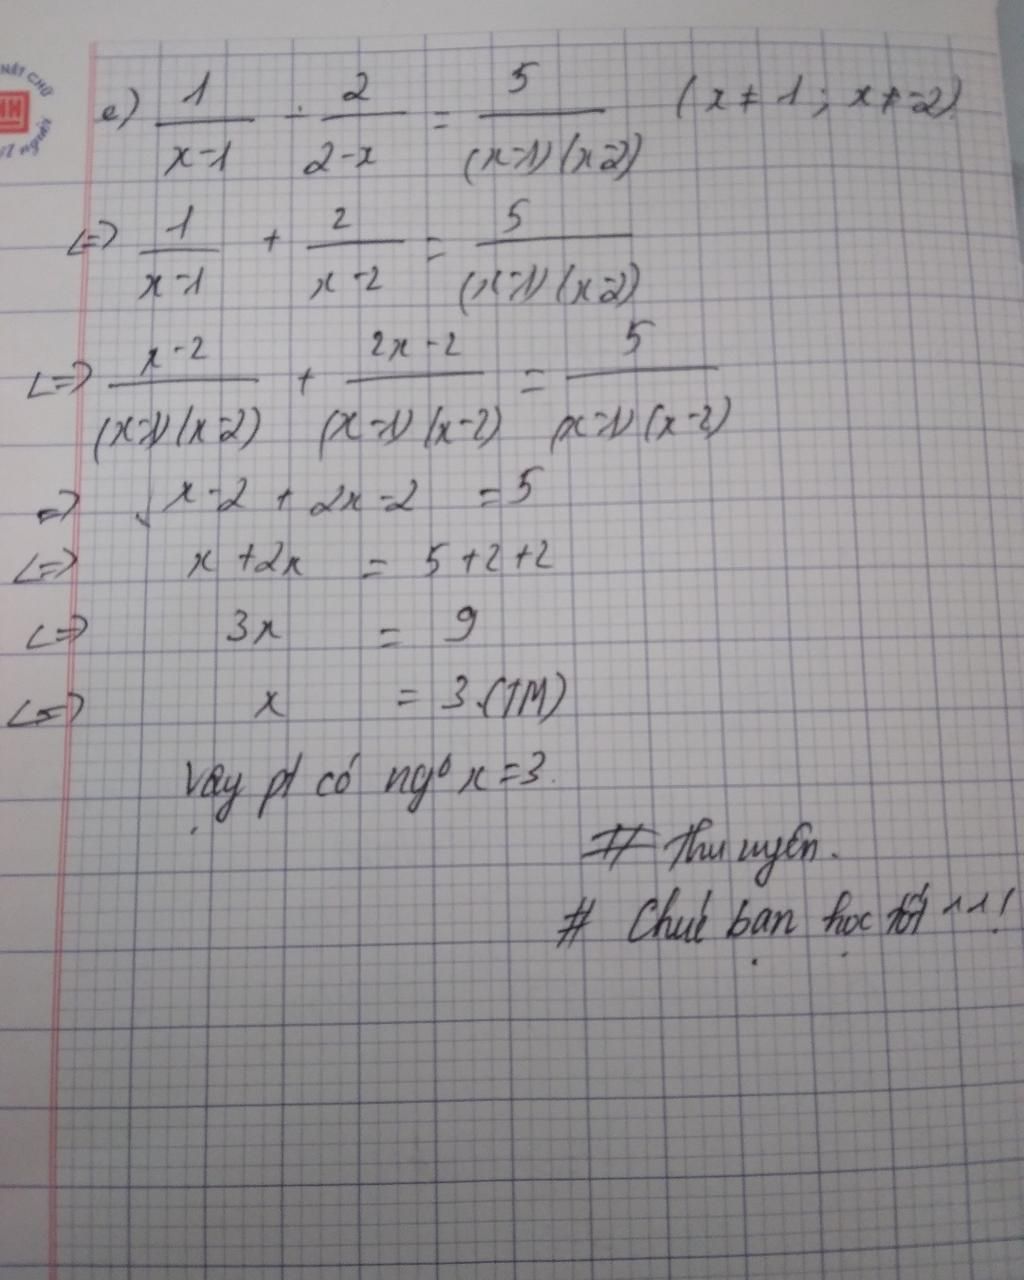 NÉT CHỮ
NH
nết người
e) 1/(x-1) - 2/(2-x) = 5/((x-1)(x-2)) (x ≠ 1; x ≠ -2)
<=> 1/(x-1) + 2/(x-2) = 5/((x-1)(x-2))
<=> (x-2)/((x-1)(x-2)) + (2x-2)/((x-1)(x-2)) = 5/((x-1)(x-2))
=> x-2 + 2x-2 = 5
<=> x + 2x = 5 + 2 + 2
<=> 3x = 9
<=> x = 3.(TM)
Vậy pt có ngº x = 3.
# Thu uyên.
# Chúc bạn học tốt ^^!